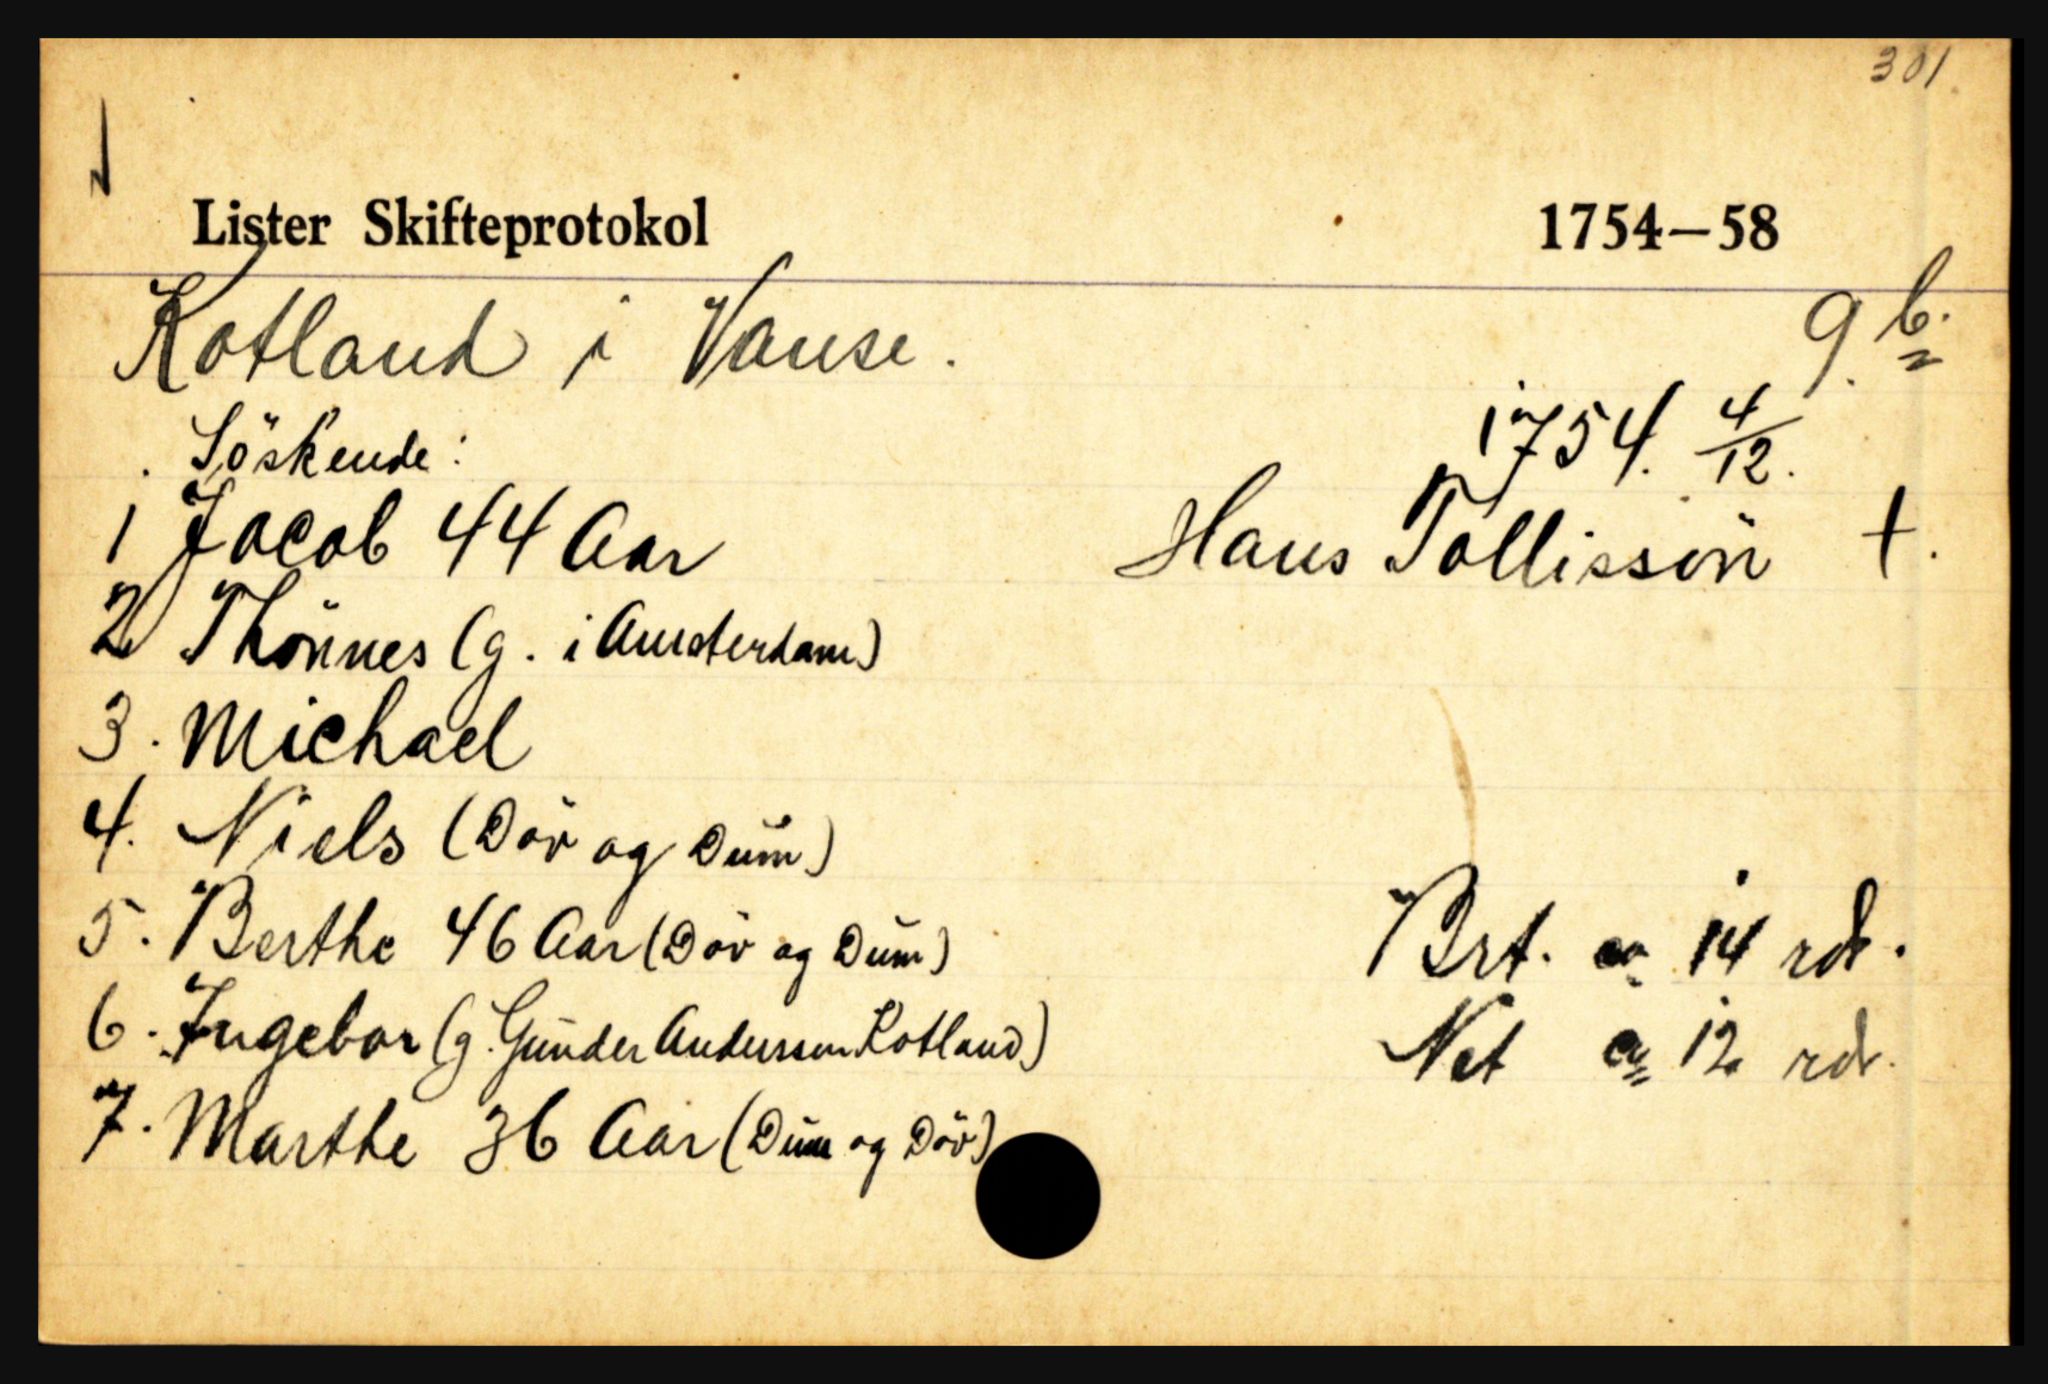 301
Lister Skifteprotokol 1754—58
Kotland i Vanse. 9. b.
1754. 4/12.
Söskende:
1 Jacob 44 Aar
Hans Tollissön †.
2 Thönnes (g. i Amsterdam)
3. Michael
4. Niels (Döv og Dum)
5. Berthe 46 Aar (Döv og Dum)
Brt. ca 14 rdr.
6. Ingebor (g. Gunder Anderssen Kotland)
Net ca 12 rdr.
7. Marthe 36 Aar (Dum og Döv)